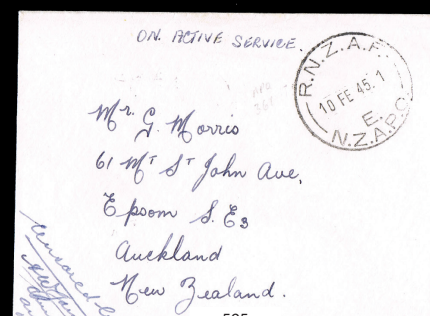 ON ACTIVE SERVICE.
R.N.Z.A.F.
10 FE 45.1
E.
N.Z.A.P.O.
Mr. G. Morris
61 MT ST John Ave,
Epsom S.E3
Auckland
New Zealand.
Censored